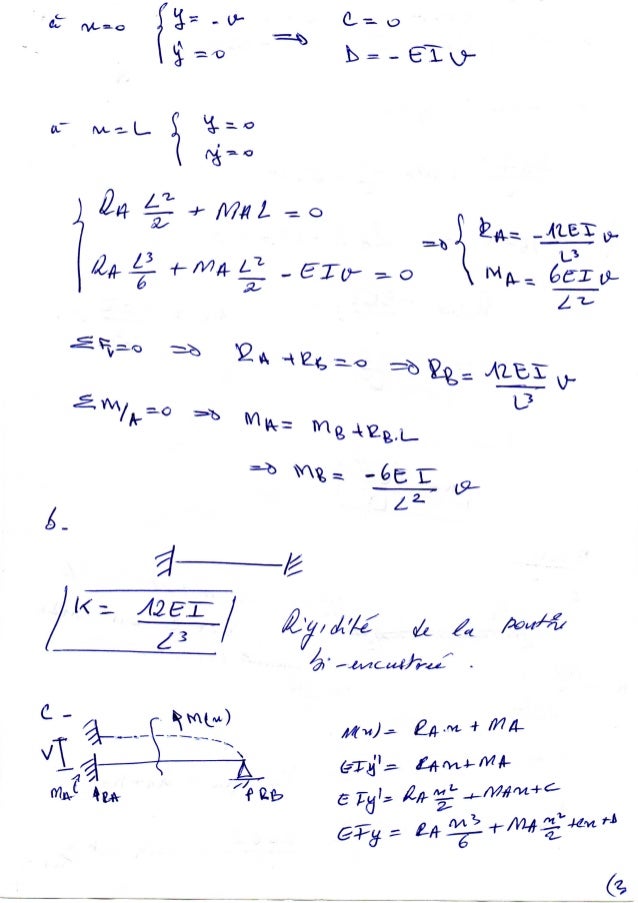 à x=0 { y = -v ⟹ C = 0
y' = 0 D = - EI v
à x = L { y = 0
y' = 0
{ RA L²/2 + MA L = 0 ⟹ { RA = -12EI/L³ v
RA L³/6 + MA L²/2 - EIv = 0 MA = 6EI/L² v
ΣFv=0 ⟹ RA + RB = 0 ⟹ RB = 12EI/L³ v
ΣM/A = 0 ⟹ MA = MB + RB.L
⟹ MB = -6EI/L² v
b-
K = 12EI/L³ Rigidité de la poutre
bi-encastrée.
C - M(x) M(x) = RA.x + MA
V EIy'' = RAx + MA
MA RA RB EIy' = RA x²/2 + MAx + C
EIy = RA x³/6 + MA x²/2 + Cx + D
(3